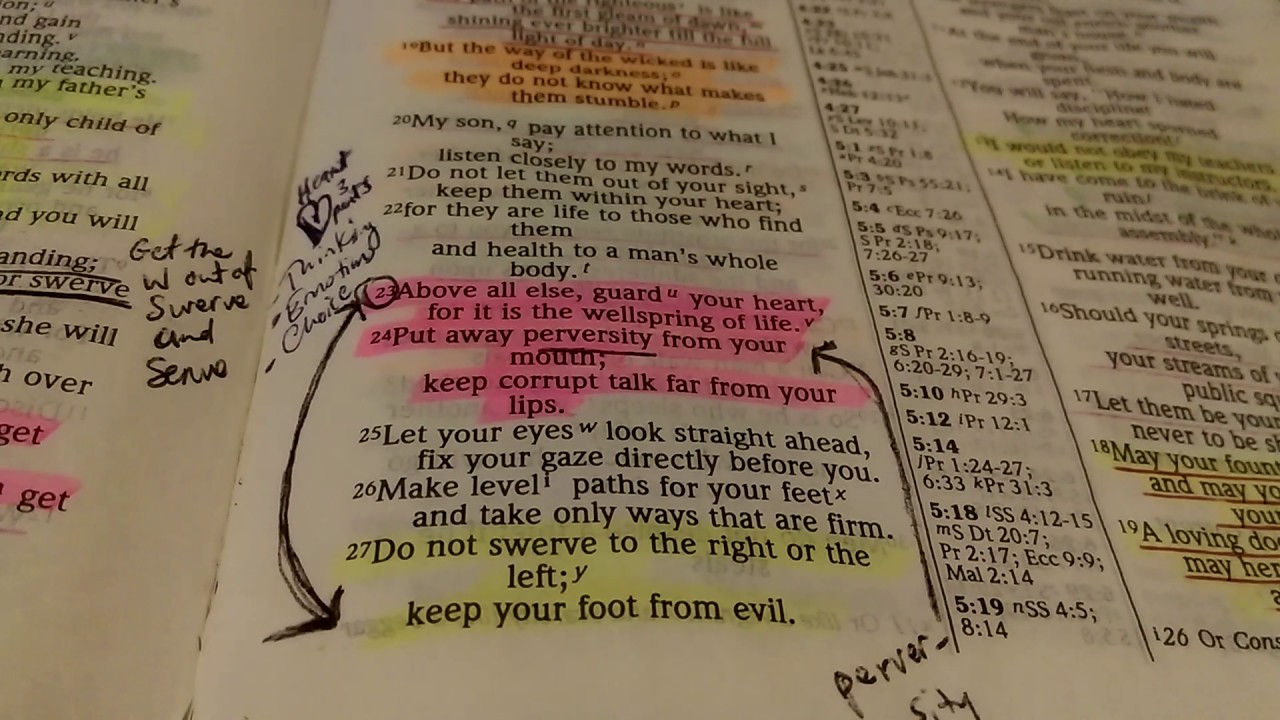 nd gain
nding. v
earning,
my teaching.
my father's
only child of
rds with all
nd you will
anding;
or swerve
she will
h over
get
get
Get the
W out of
Swerve
and
Serve
Heart
3
parts
- Thinking
- Emotions
- Choice
the first gleam of dawn,
shining ever brighter till the full
light of day. n
19But the way of the wicked is like
deep darkness; o
they do not know what makes
them stumble. p
20My son, q pay attention to what I
say;
listen closely to my words. r
21Do not let them out of your sight, s
keep them within your heart;
22for they are life to those who find
them
and health to a man's whole
body. t
23Above all else, guard u your heart,
for it is the wellspring of life. v
24Put away perversity from your
mouth;
keep corrupt talk far from your
lips.
25Let your eyes w look straight ahead,
fix your gaze directly before you.
26Make level i paths for your feet x
and take only ways that are firm.
27Do not swerve to the right or the
left; y
keep your foot from evil.
perver-
sity
4:27
5:1
Pr 4:20
5:3
Pr 7:5
5:4 c Ecc 7:26
5:5 d S Ps 9:17;
S Pr 2:18;
7:26-27
5:6 e Pr 9:13;
30:20
5:7 f Pr 1:8-9
5:8
g S Pr 2:16-19;
6:20-29; 7:1-27
5:10 h Pr 29:3
5:12 i Pr 12:1
5:14
j Pr 1:24-27;
6:33 k Pr 31:3
5:18 l SS 4:12-15
m S Dt 20:7;
Pr 2:17; Ecc 9:9;
Mal 2:14
5:19 n SS 4:5;
8:14
discipline!
How my heart spurned
correction!
I would not obey my teachers
or listen to my instructors.
14I have come to the brink of
ruin
in the midst of the whole
assembly."
15Drink water from your
running water from
well.
16Should your springs
streets,
your streams of
public sq
17Let them be your
never to be sh
18May your foun
and may yo
your
19A loving do
may her
i26 Or Cons